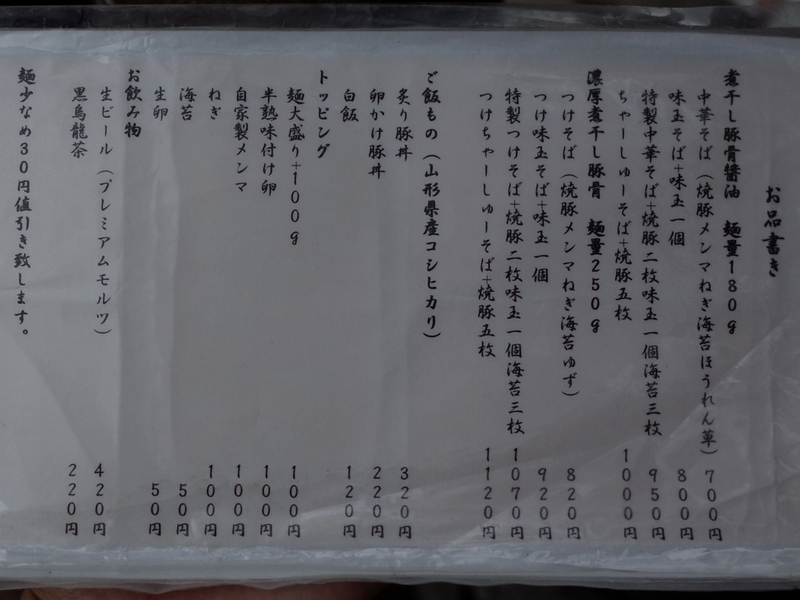 お品書き
煮干し豚骨醤油　麺量180g
中華そば（焼豚メンマねぎ海苔ほうれん草）700円
味玉そば+味玉一個　800円
特製中華そば+焼豚二枚味玉一個海苔三枚　950円
ちゃーしゅーそば+焼豚五枚　1000円
濃厚煮干し豚骨　麺量250g
つけそば（焼豚メンマねぎ海苔ゆず）820円
つけ味玉そば+味玉一個　920円
特製つけそば+焼豚二枚味玉一個海苔三枚　1070円
つけちゃーしゅーそば+焼豚五枚　1120円
ご飯もの（山形県産コシヒカリ）
炙り豚丼　320円
卵かけ豚丼　220円
白飯　120円
トッピング
麺大盛り+100g　100円
半熟味付け卵　100円
自家製メンマ　100円
ねぎ　100円
海苔　50円
生卵　50円
お飲み物
生ビール（プレミアムモルツ）　420円
黒烏龍茶　220円
麺少なめ30円値引き致します。